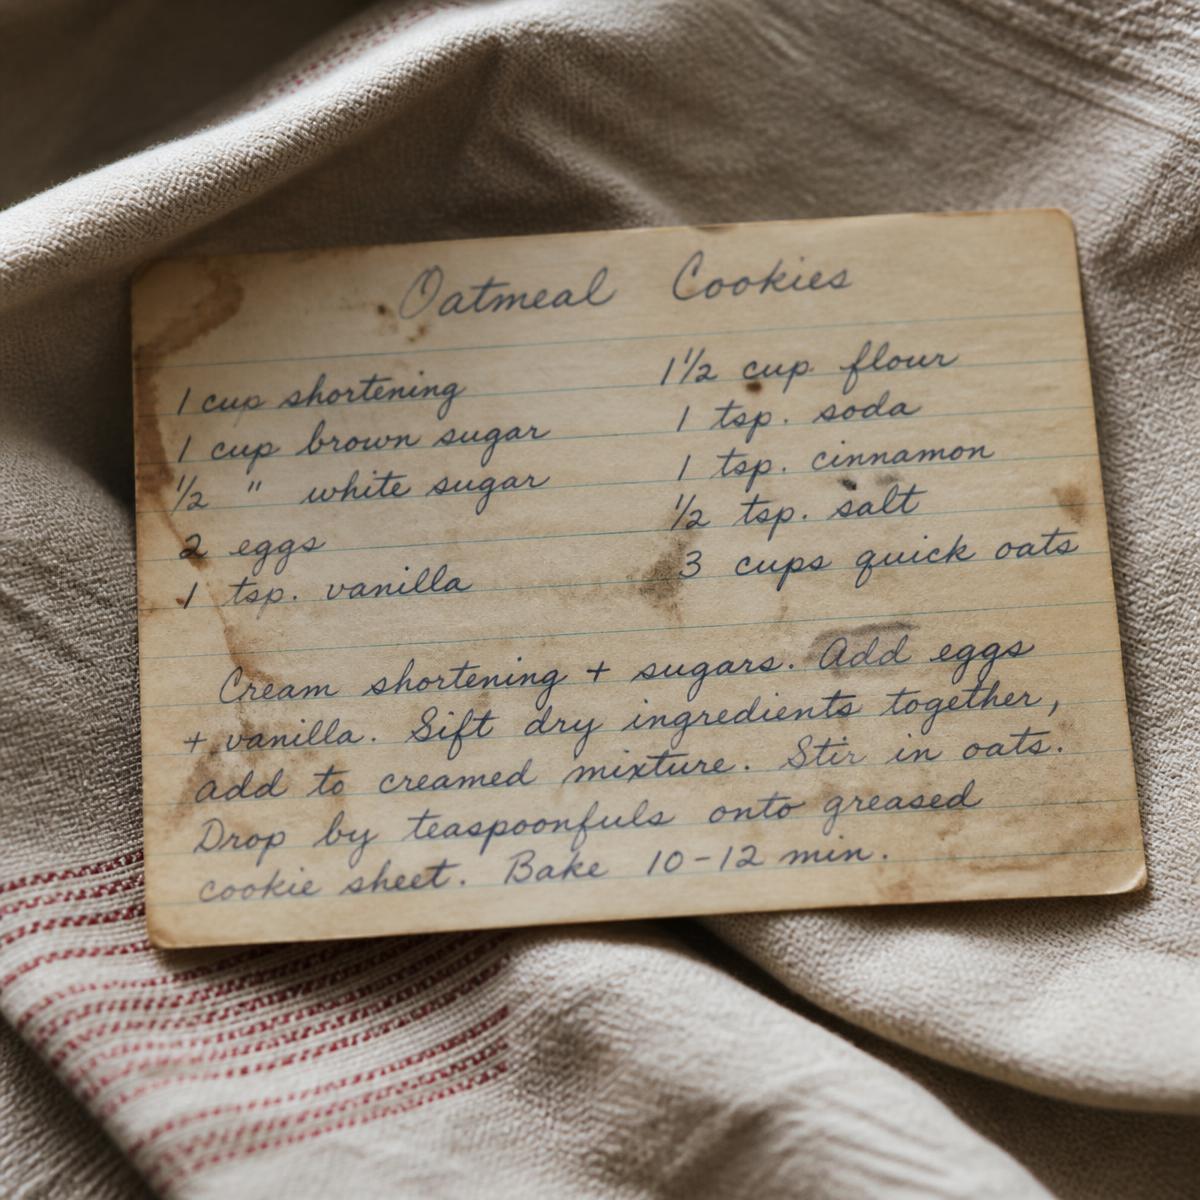 Oatmeal Cookies
1 cup shortening
1 cup brown sugar
1/2 " white sugar
2 eggs
1 tsp. vanilla
1 1/2 cup flour
1 tsp. soda
1 tsp. cinnamon
1/2 tsp. salt
3 cups quick oats
Cream shortening + sugars. Add eggs
+ vanilla. Sift dry ingredients together,
add to creamed mixture. Stir in oats.
Drop by teaspoonfuls onto greased
cookie sheet. Bake 10-12 min.